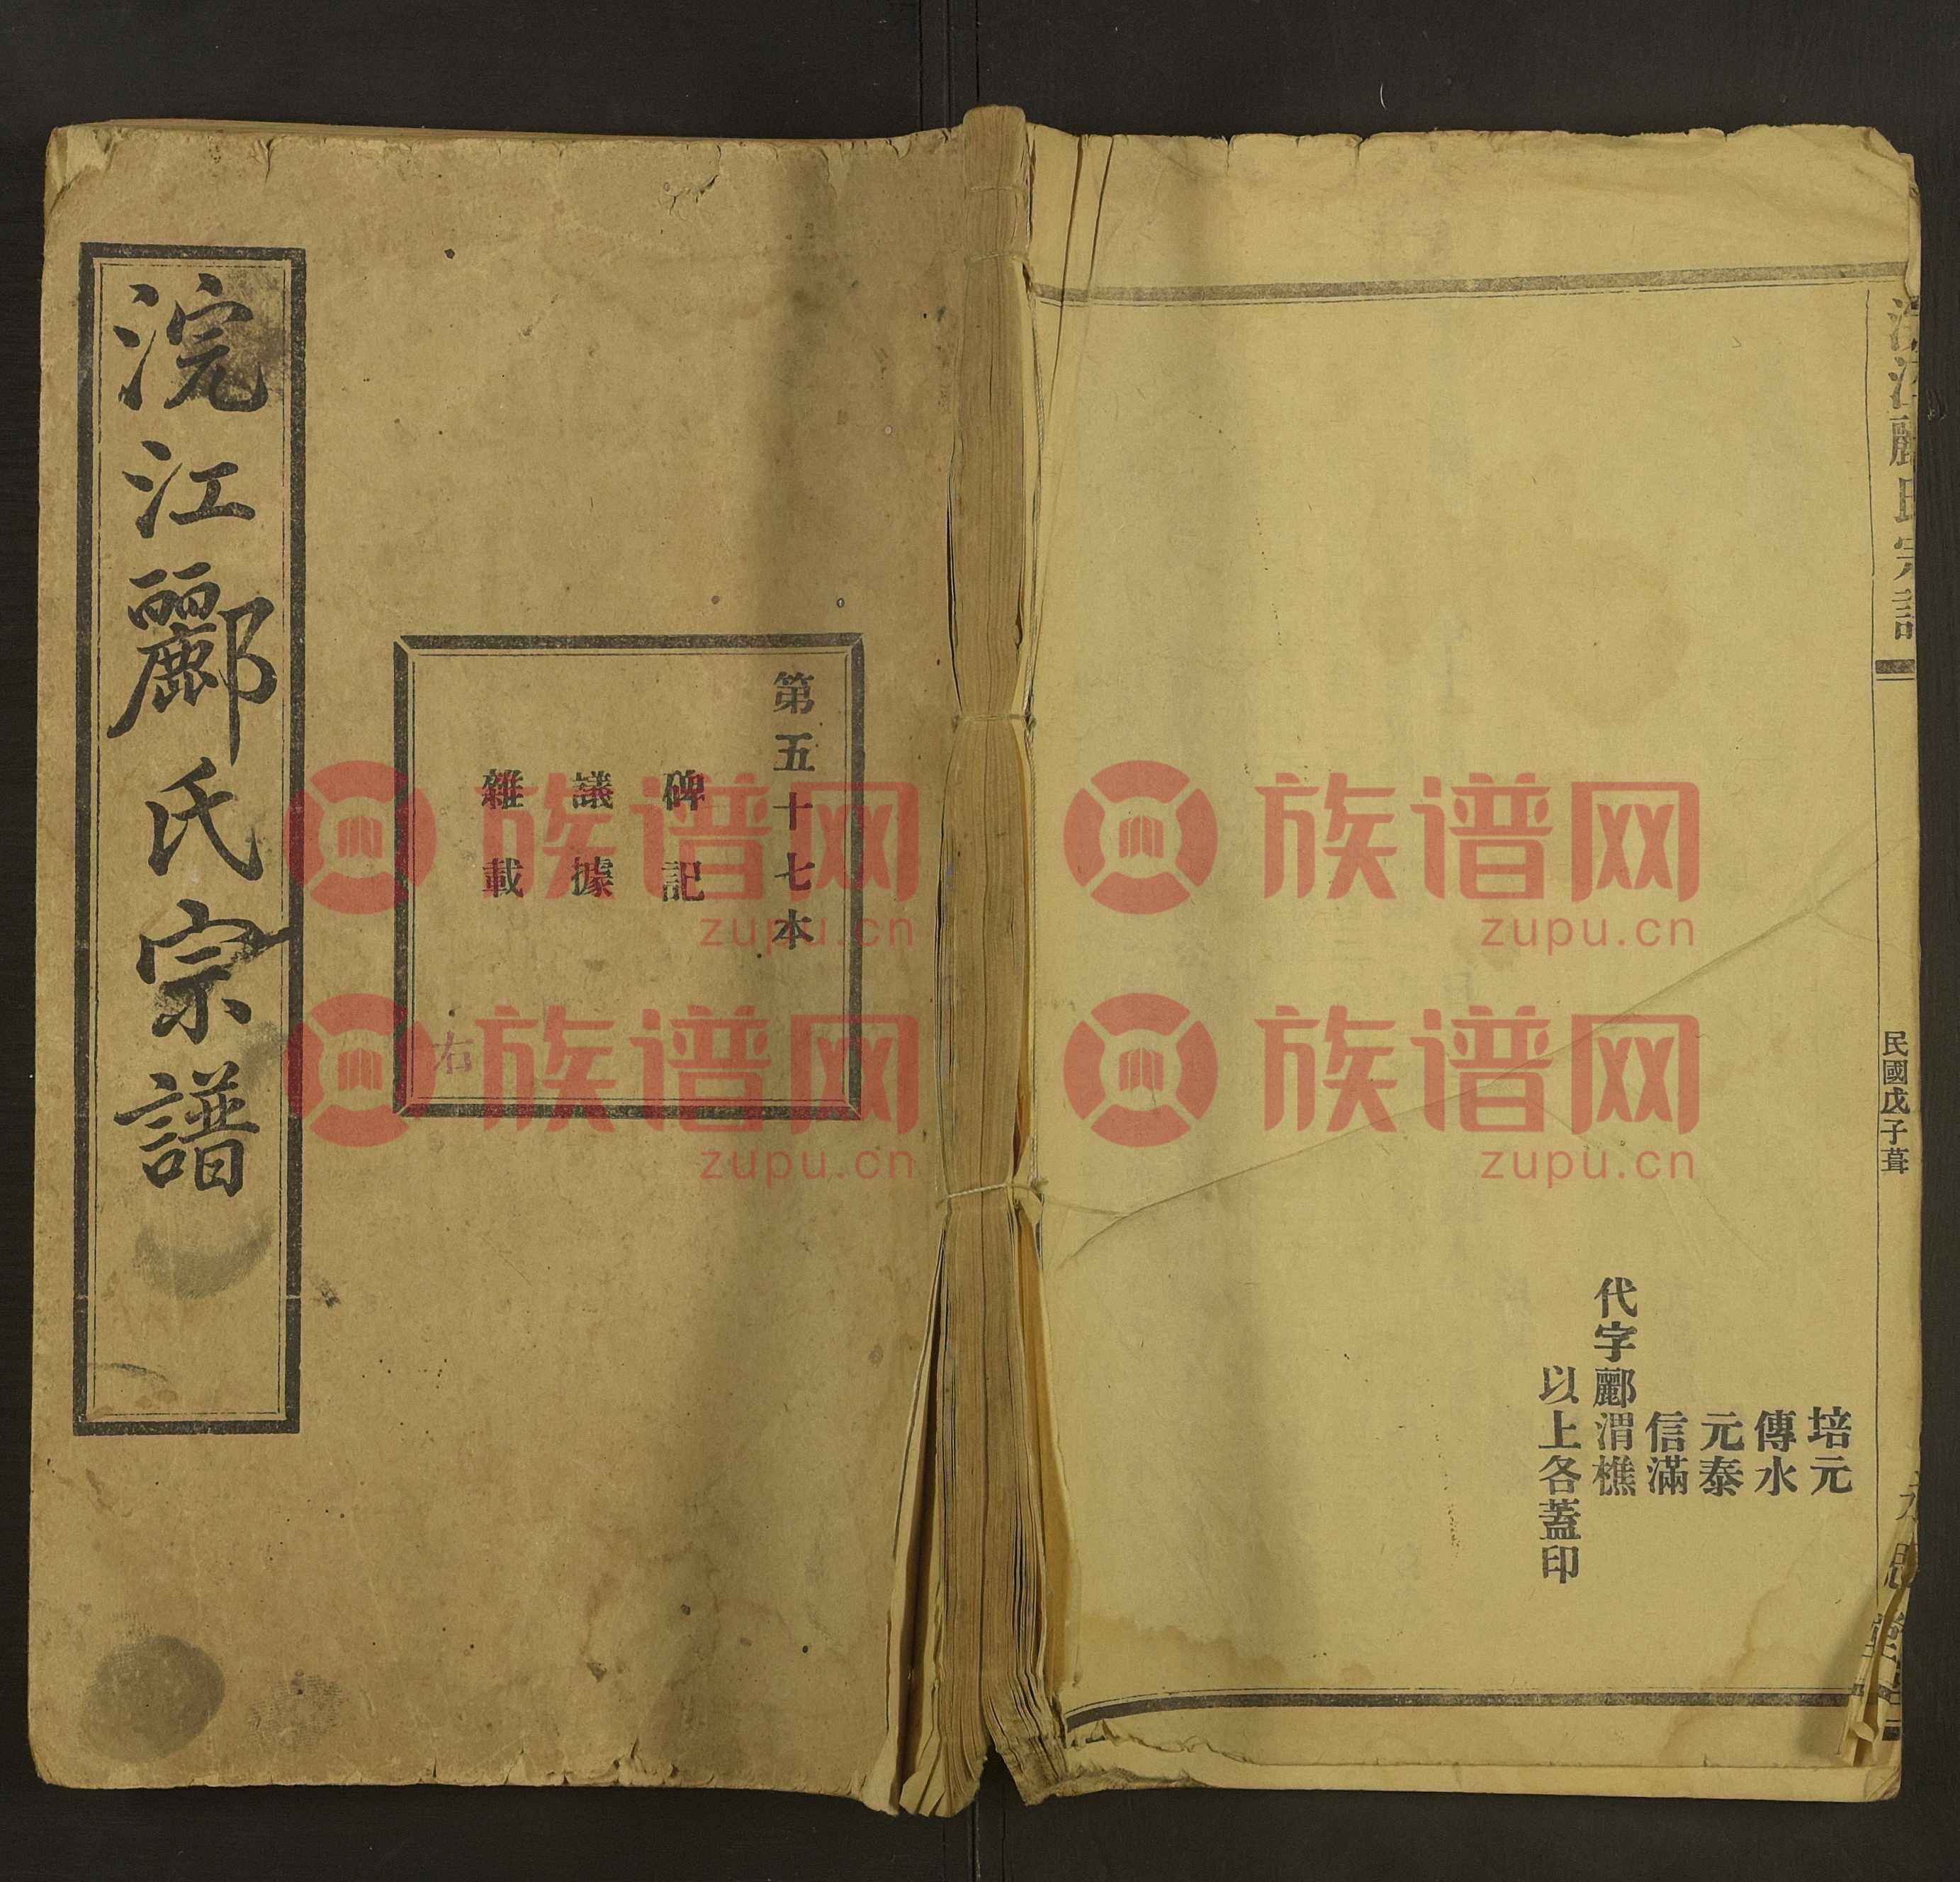 浣江酈氏宗譜
民國戊子葺
培元
傳水
元泰
信滿
代字酈渭樵
以上各蓋印
第五十七本
碑記
議據
雜載
右
浣江酈氏宗譜
族谱网
zupu.cn
族谱网
zupu.cn
族谱网
zupu.cn
族谱网
zupu.cn